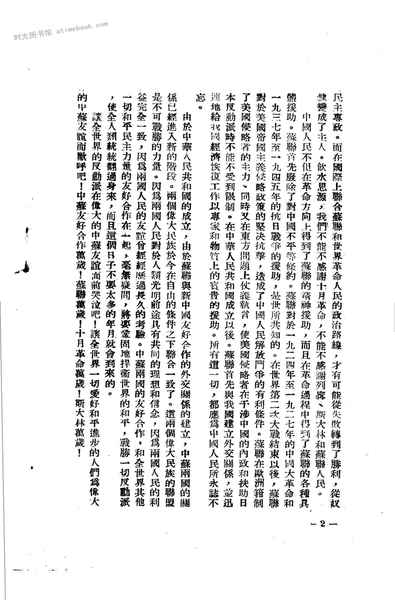 时光图书馆 atimebook.com
民主專政。而在國際上聯合蘇聯和世界革命人民的政治路線，才有可能從失敗轉到了勝利，從奴
隸變成了主人。飲水思源，我們不能不感謝十月革命，不能不感謝列寧、斯大林和蘇聯人民。
中國人民不但在革命方向上得到了蘇聯的精神援助，而且在革命過程中得到了蘇聯的各種具
體援助。蘇聯首先廢除了對中國不平等條約。蘇聯對於一九二四年至一九二七年的中國大革命和
一九三七年至一九四五年的抗日戰爭的援助，是世所共知的。在世界第二次大戰結束以後，蘇聯
對於美國帝國主義侵略政策的堅決抗擊，造成了中國人民解放鬥爭的有利條件。蘇聯在歐洲箝制
了美國侵略者的主力，同時又在東方問題上仗義執言，使美國侵略者在干涉中國的內政和扶助日
本反動派時不能不受到限制。在中華人民共和國成立以後。蘇聯首先與我國建立外交關係，並迅
速地給我國經濟恢復工作以專家和物質上的寶貴的援助。所有這一切，都應爲中國人民所永誌不
忘。
由於中華人民共和國的成立，由於蘇聯與新中國友好合作的外交關係的建立，中蘇兩國的關
係已經進入新的階段。兩個偉大民族於今在自由的條件之下聯合一致了。這兩個偉大民族的聯盟
是不可戰勝的力量。因爲兩國人民對於人類光明前途具有共同的理想和信念，因爲兩國人民的利
益完全一致，因爲兩國人民的友誼曾經經過長久的考驗。中蘇兩國的友好合作，和全世界其他
一切和平民主力量的友好合作在一起，毫無疑問，將要鞏固地保衛世界的和平，戰勝一切反動派
，使全人類統統翻過身來，而且這個日子不要太多的年月就會到來的。
讓全世界的反動派在偉大的中蘇友誼面前哭泣吧！讓全世界一切愛好和平進步的人們爲偉大
的中蘇友誼而歡呼吧！中蘇友好合作萬歲！蘇聯萬歲！十月革命萬歲！斯大林萬歲！
— 2 —